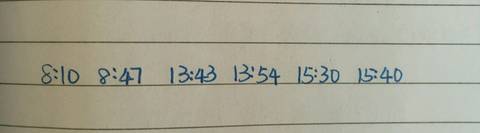 8:10 8:47 13:43 13:54 15:30 15:40